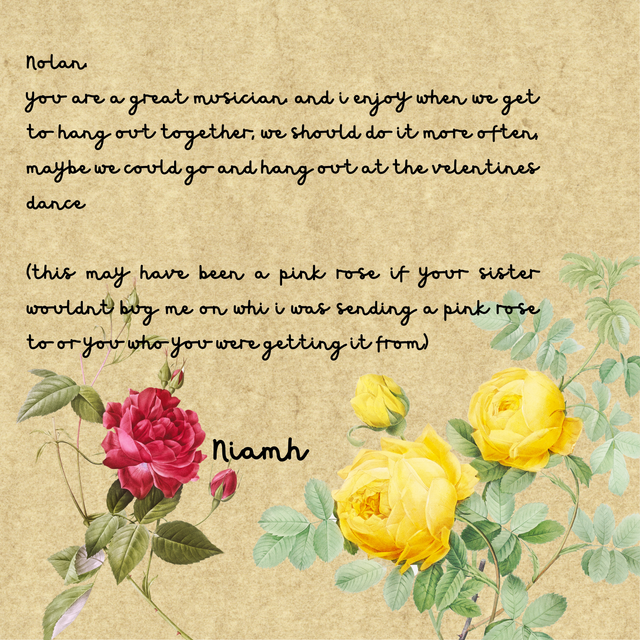 Nolan,
you are a great musician, and i enjoy when we get
to hang out together, we should do it more often,
maybe we could go and hang out at the velentines
dance
(this may have been a pink rose if your sister
wouldnt bug me on whi i was sending a pink rose
to or you who you were getting it from)
Niamh